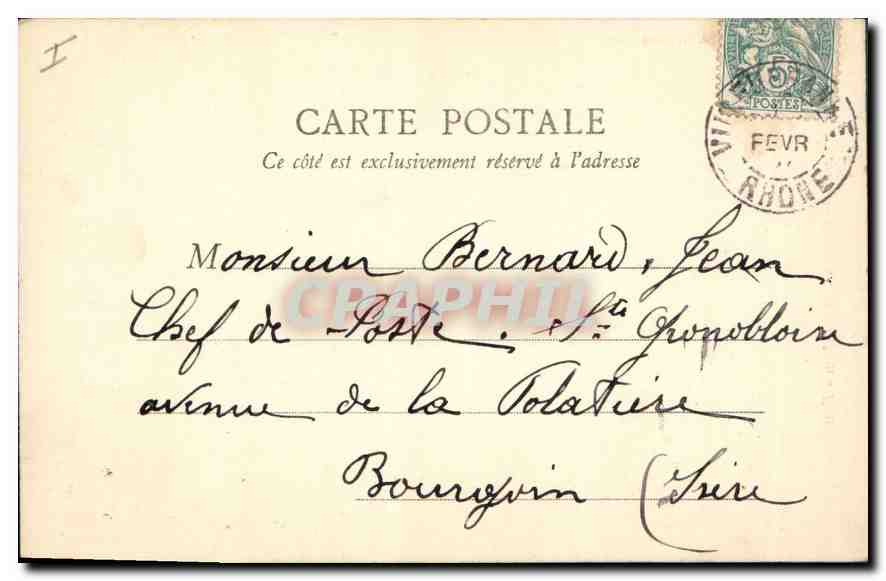 I
5
POSTES
VILLEURBANNE
FEVR
RHONE
CARTE POSTALE
Ce côté est exclusivement réservé à l'adresse
Monsieur Bernard, Jean
CPAPHIL
Chef de Poste. Sté Gronobloise
avenue de la Folatière
Bourgoin (Isère